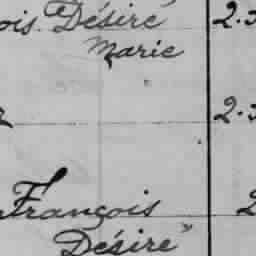 ois Désiré 2.
Marie
2.
François 2
Désiré"